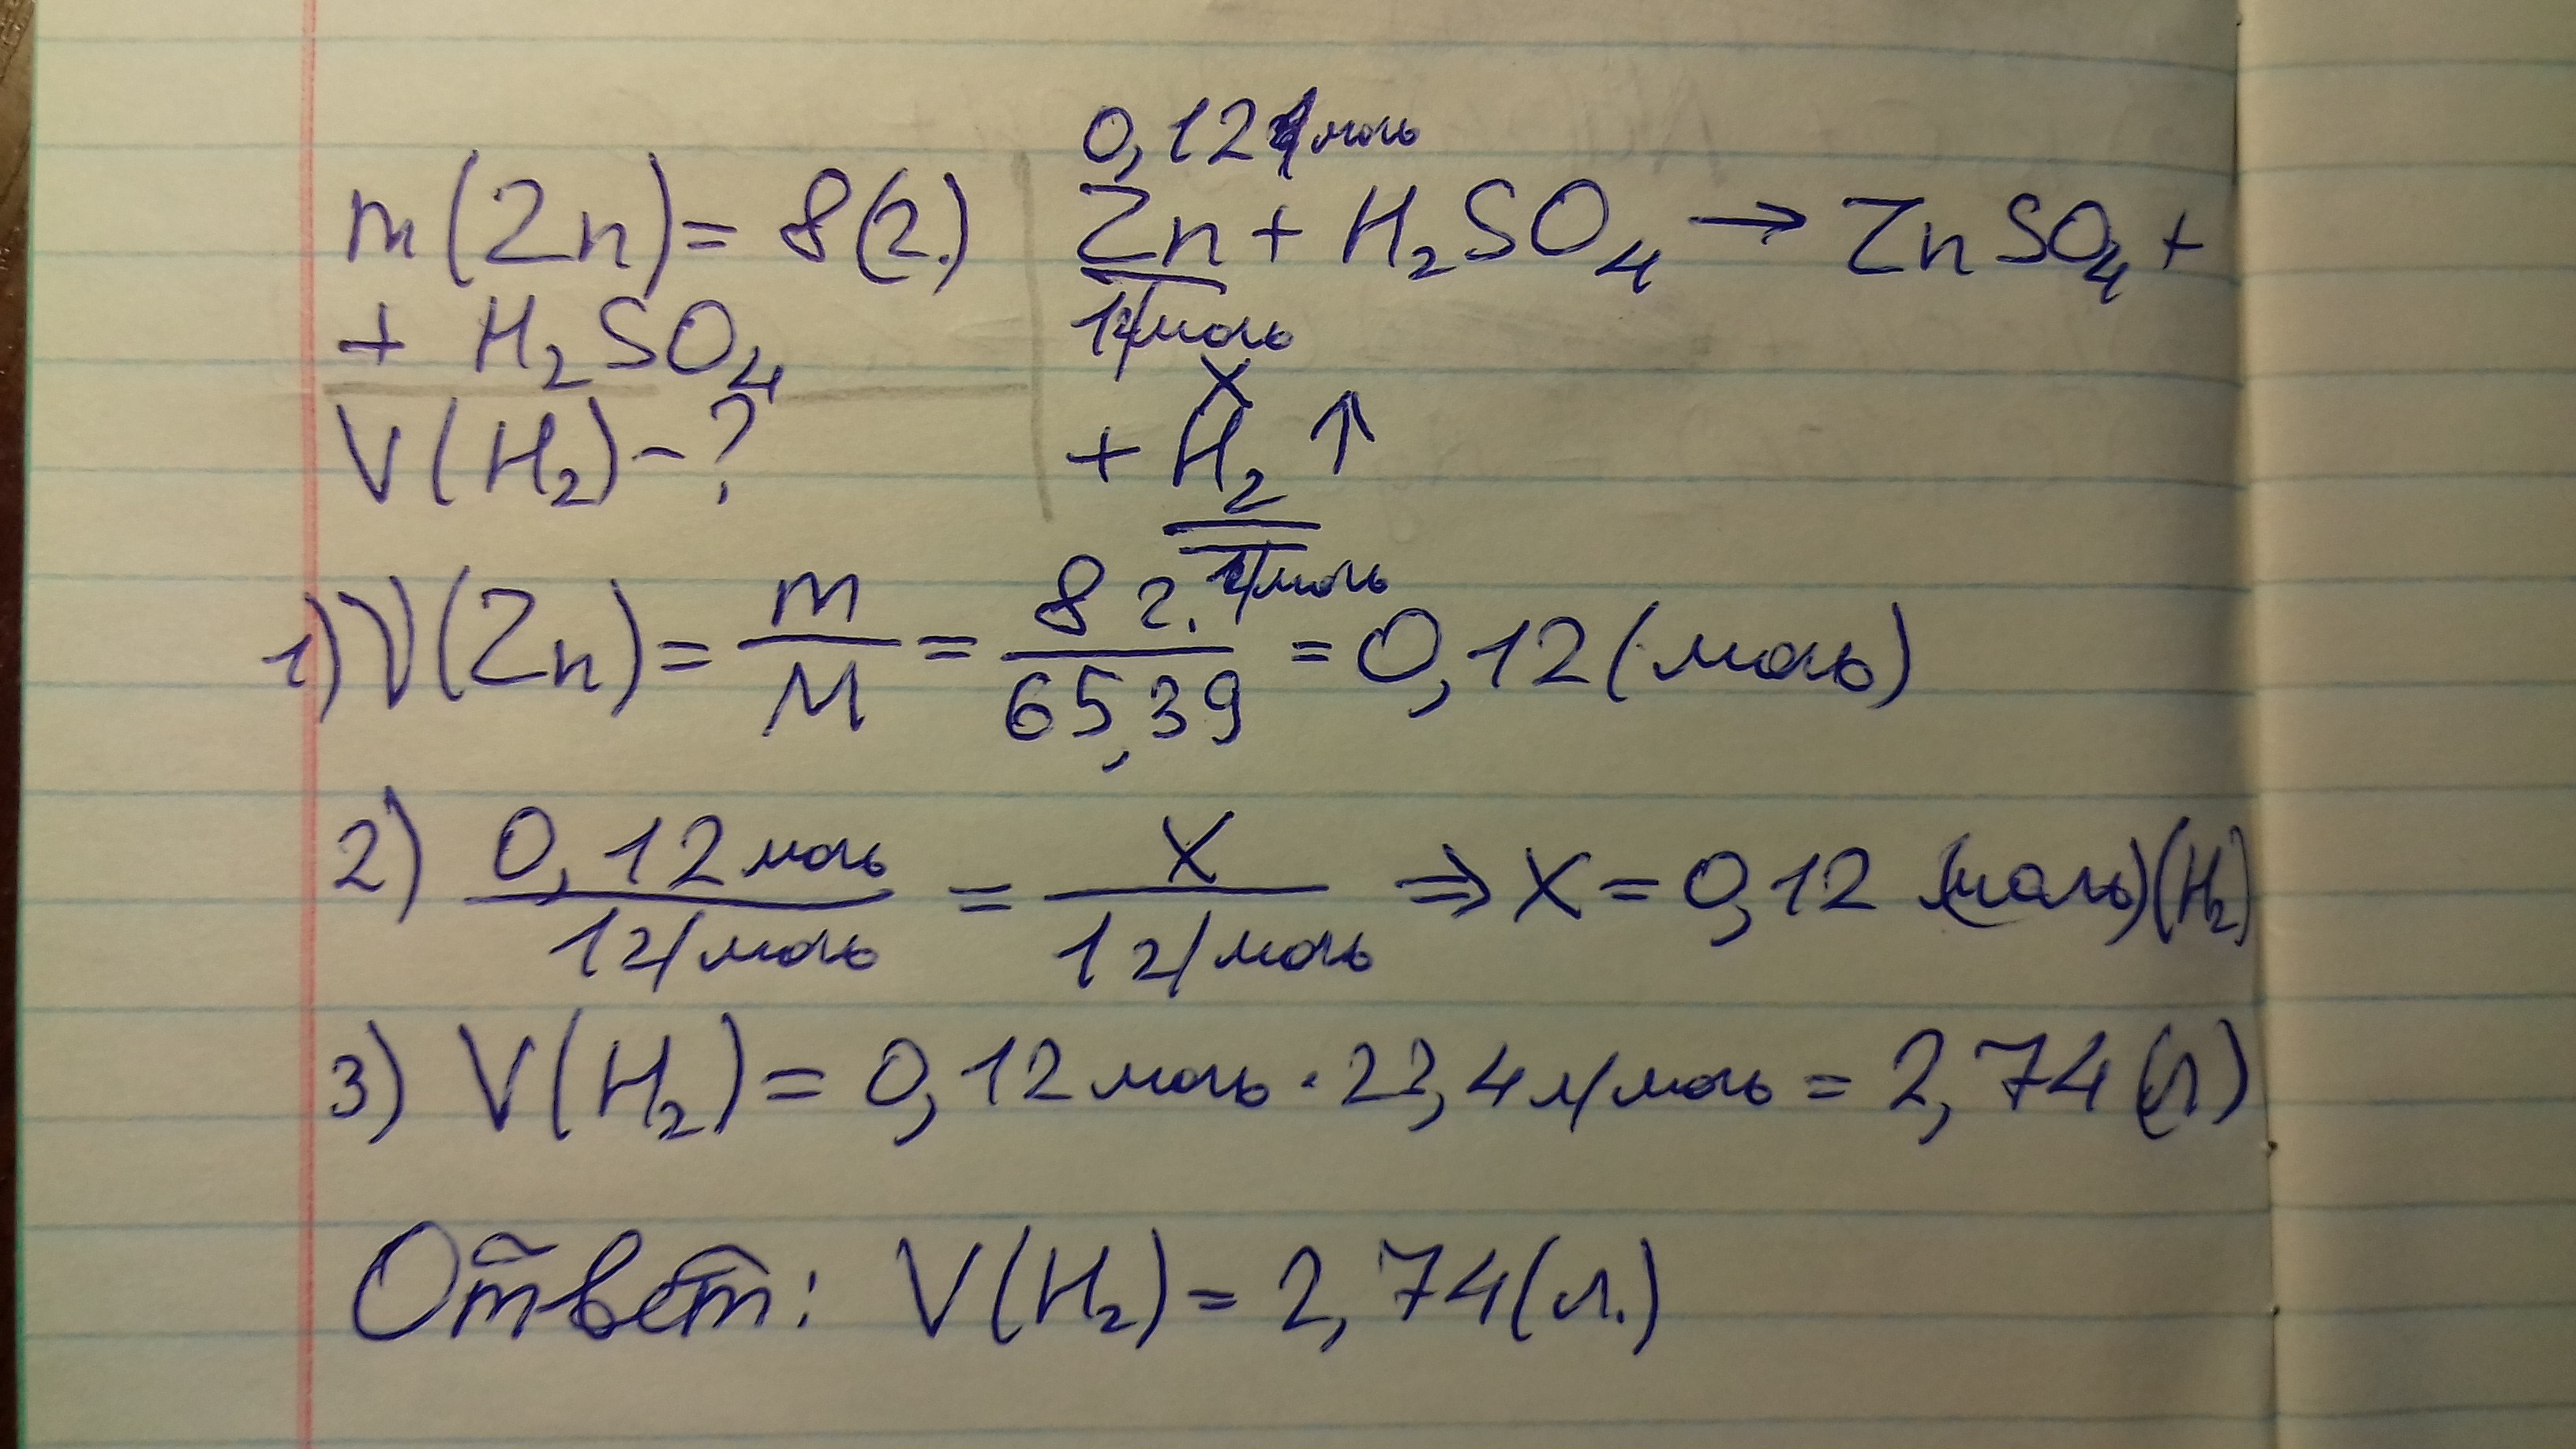 m(Zn) = 8(г.)
+ H₂SO₄
V(H₂) - ?
0,12 моль
Zn + H₂SO₄ → ZnSO₄ +
1г/моль
x
+ H₂ ↑
1г/моль
1) V(Zn) = m/M = 8 г./65,39 = 0,12 (моль)
2) 0,12 моль/1 г/моль = x/1 г/моль ⇒ x = 0,12 (моль)(H₂)
3) V(H₂) = 0,12 моль · 22,4 л/моль = 2,74 (л)
Ответ: V(H₂) = 2,74 (л.)